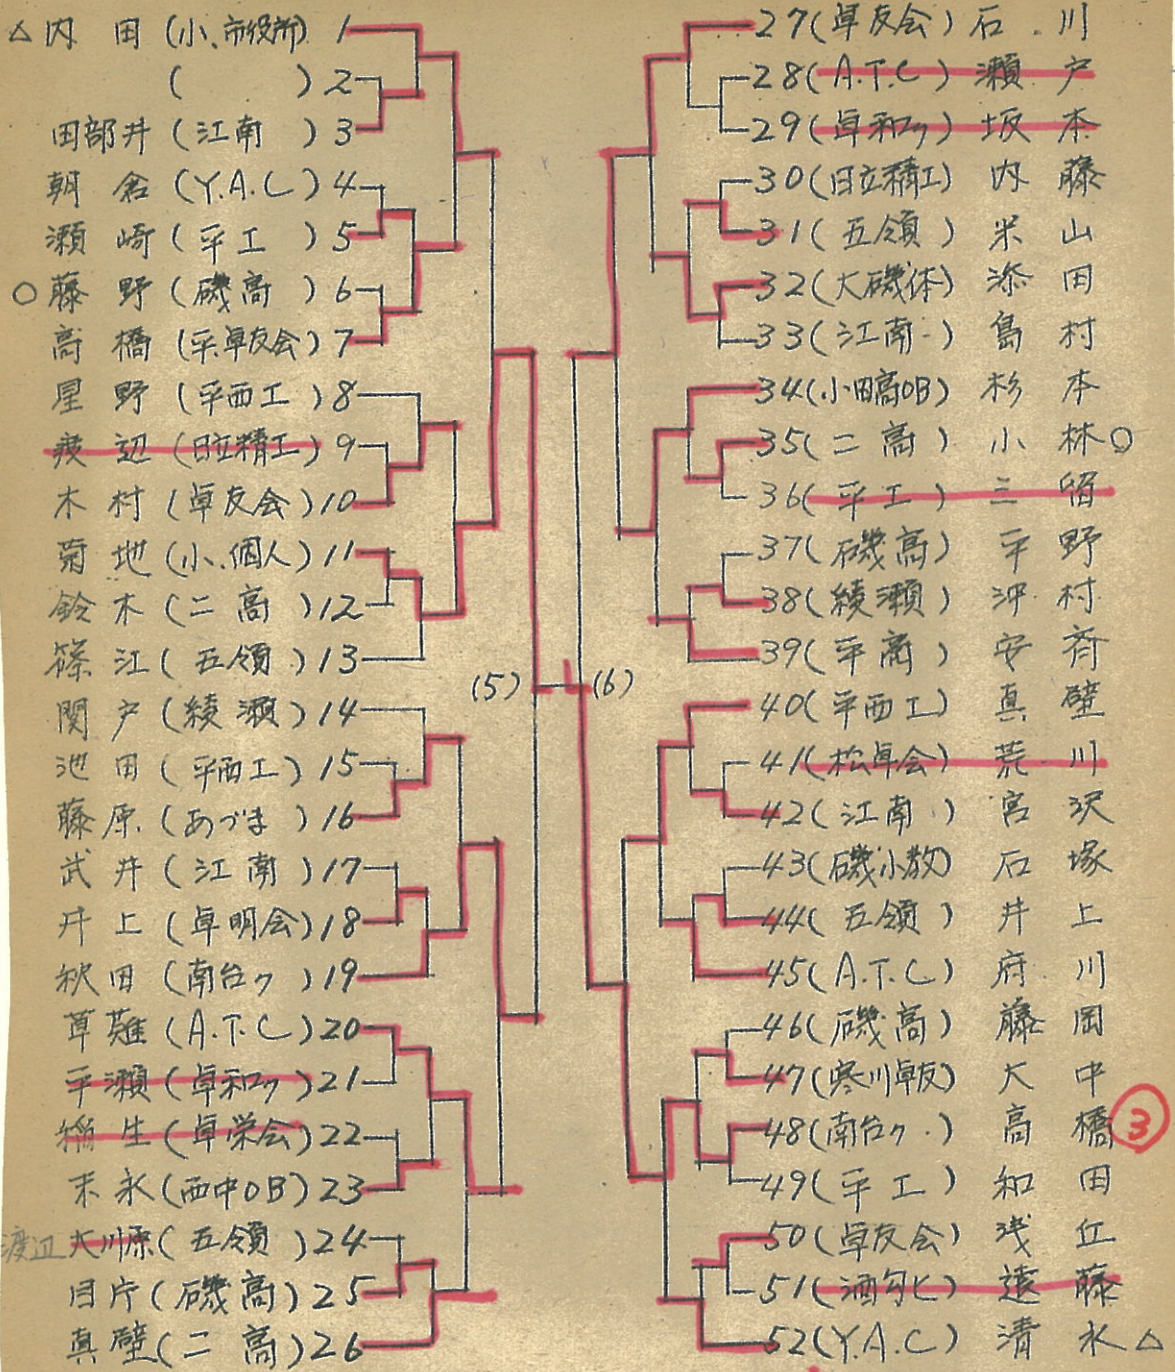 △内田(小.市役所) 1
( ) 2
田部井(江南) 3
朝倉(Y.A.C) 4
瀬崎(平工) 5
○藤野(磯高) 6
高橋(平.卓友会) 7
星野(平西工) 8
渡辺(日立精工) 9
木村(卓友会) 10
菊地(小.個人) 11
鈴木(二高) 12
篠江(五領) 13
関戸(綾瀬) 14
池田(平西工) 15
藤原(あづま) 16
武井(江南) 17
井上(卓明会) 18
秋田(南台ク) 19
草薙(A.T.C) 20
平瀬(卓和ク) 21
稲生(卓栄会) 22
末永(西中OB) 23
渡辺 大川原(五領) 24
目片(磯高) 25
真壁(二高) 26
(5) (6)
27(卓友会)石川
28(A.T.C)瀬戸
29(卓和ク)坂本
30(日立精工)内藤
31(五領)米山
32(大磯体)添田
33(江南)島村
34(小田高OB)杉本
35(二高)小林○
36(平工)三留
37(磯高)平野
38(綾瀬)沖村
39(平商)安斉
40(平西工)真壁
41(松卓会)荒川
42(江南)宮沢
43(磯小教)石塚
44(五領)井上
45(A.T.C)府川
46(磯高)藤岡
47(寒川卓友)大中
48(南台ク.)高橋 3
49(平工)和田
50(卓友会)浅丘
51(酒匂ヒ)遠藤
52(Y.A.C)清水△